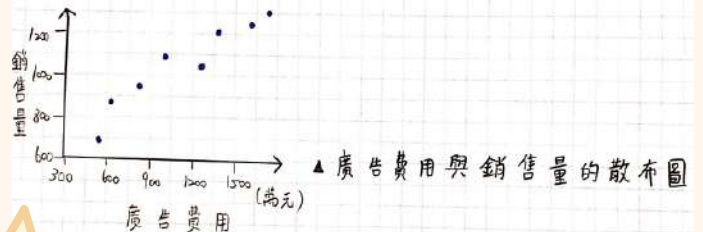 1200
1000
800
600
銷售量
300 600 900 1200 1500
(萬元)
廣告費用
▲廣告費用與銷售量的散布圖